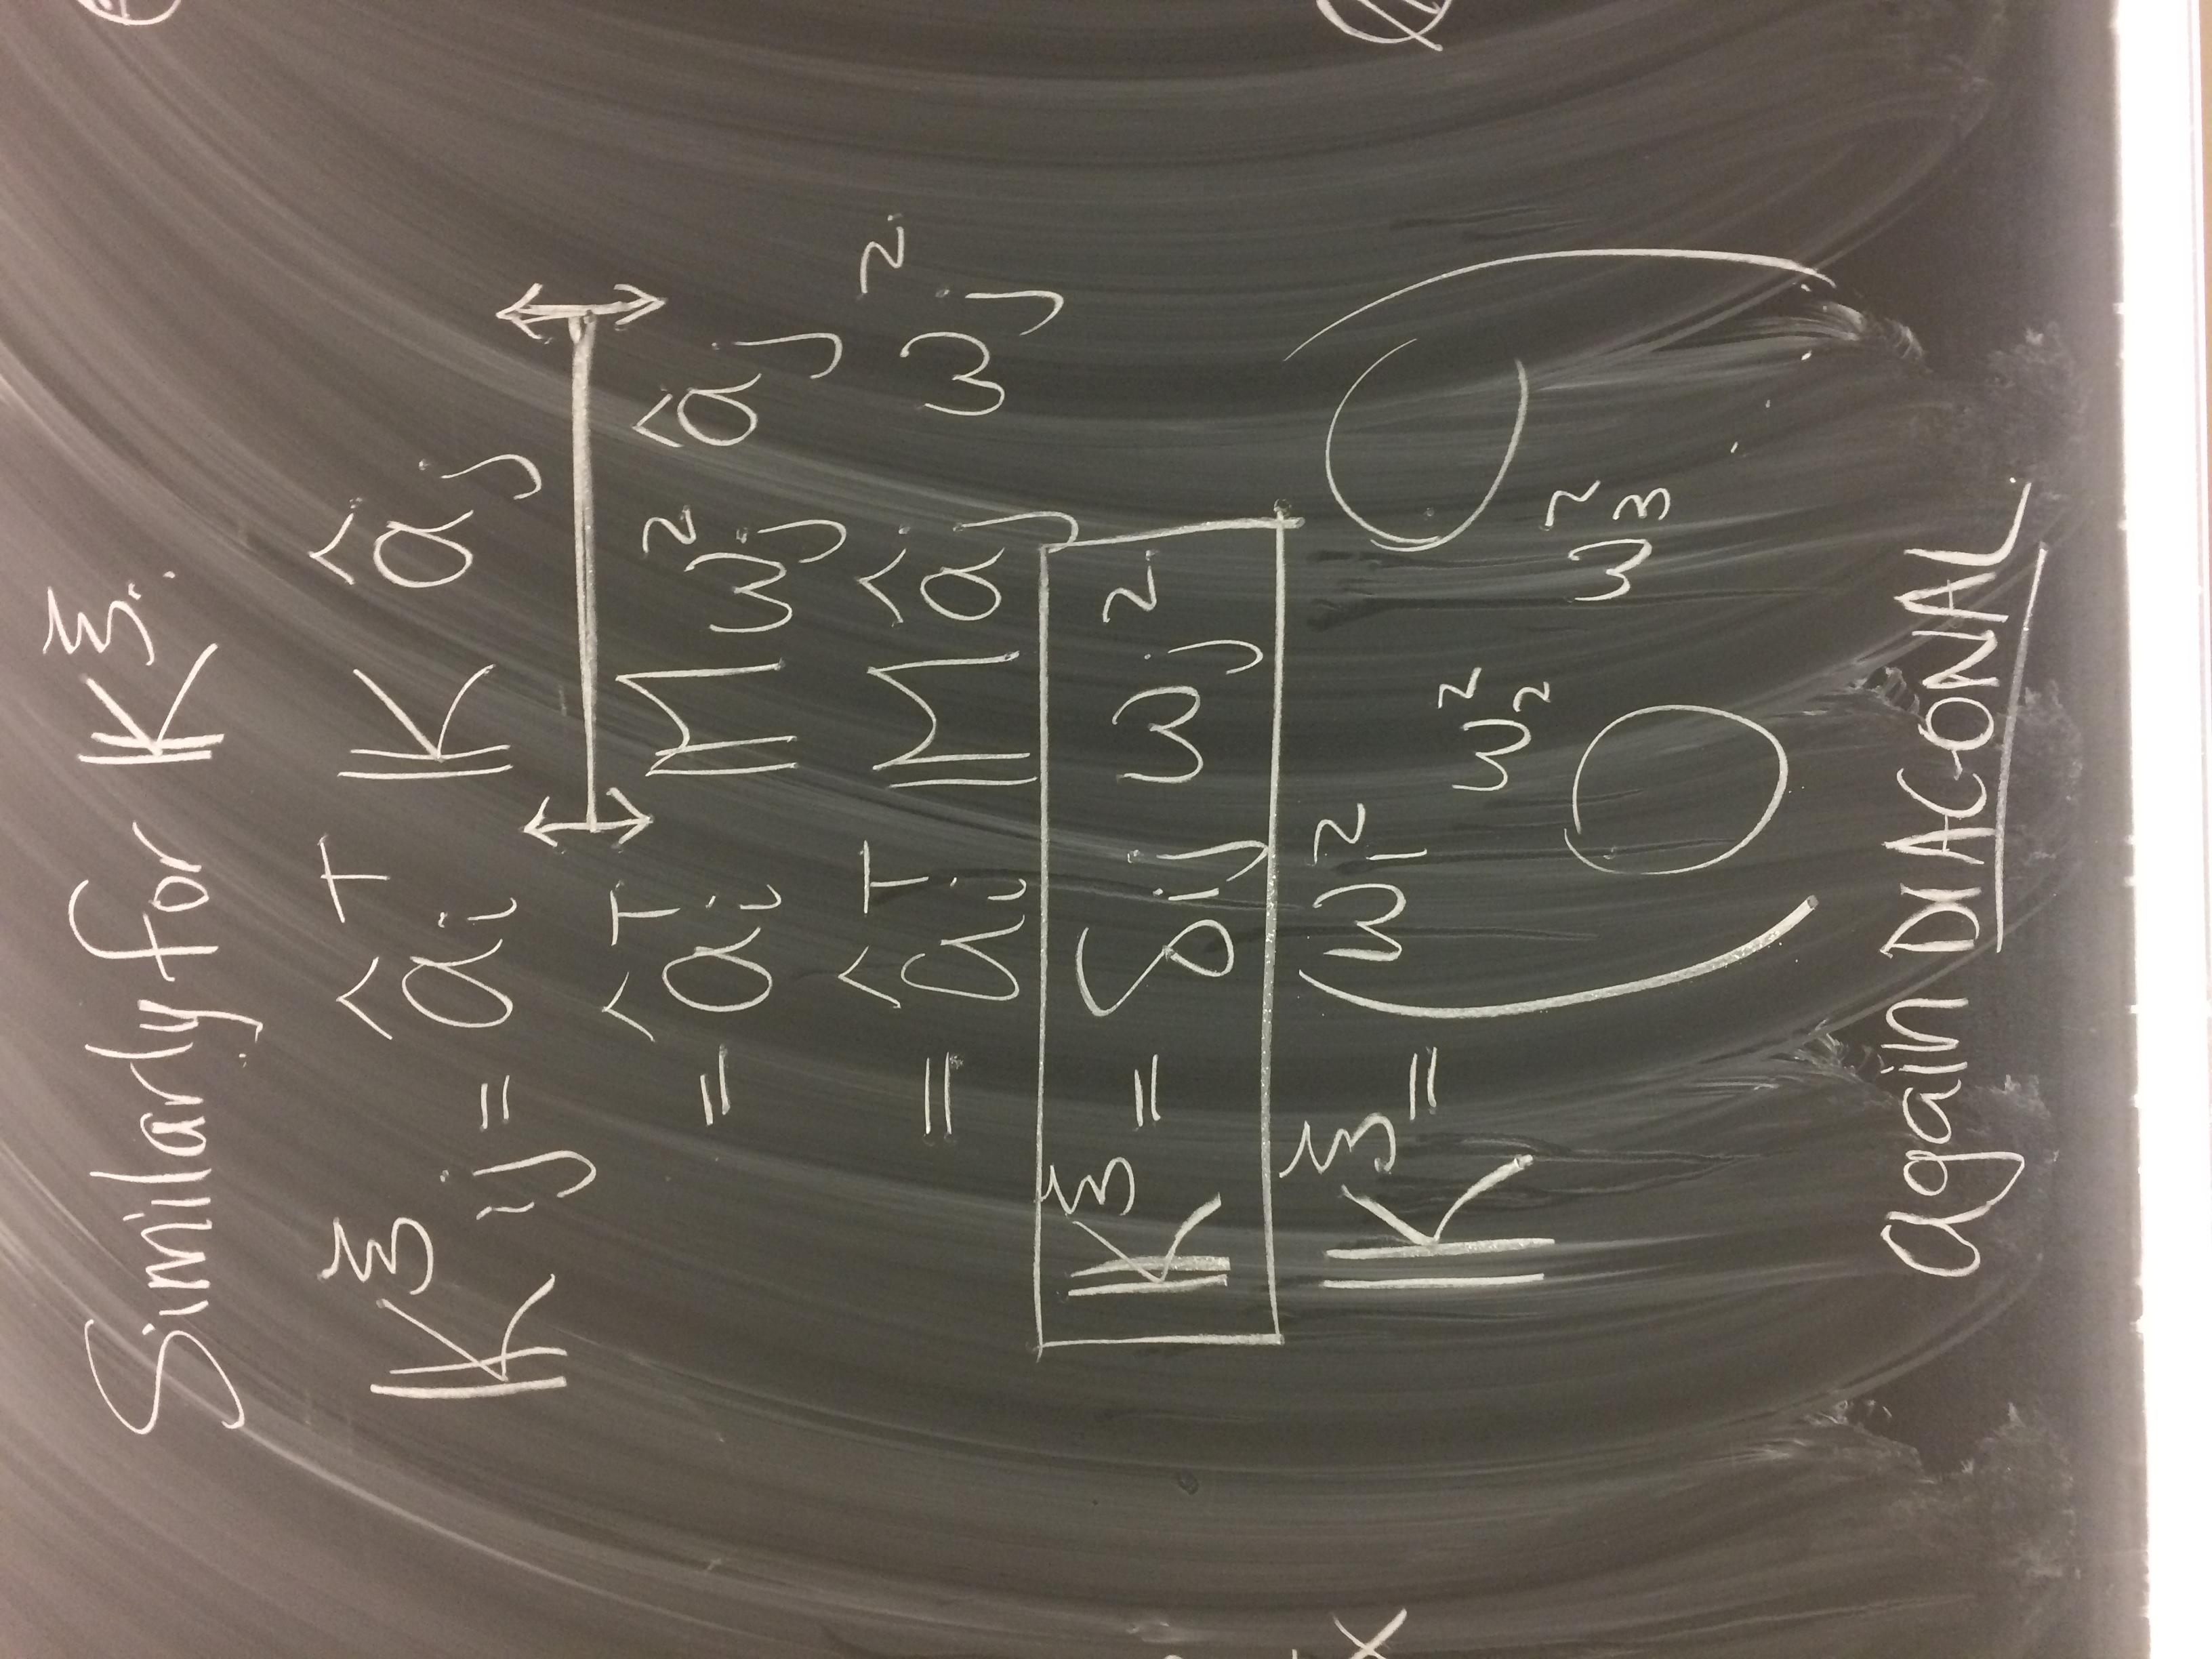 Similarly for 𝕂^ξ:
𝕂^ξ_ij = â_i^T 𝕂 â_j
= â_i^T 𝕄 ω_j^2 â_j
= â_i^T 𝕄 â_j ω_j^2
𝕂^ξ = δ_ij ω_j^2
𝕂^ξ = ( ω_1^2 0
ω_2^2
0 ω_3^2 )
again DIAGONAL
x